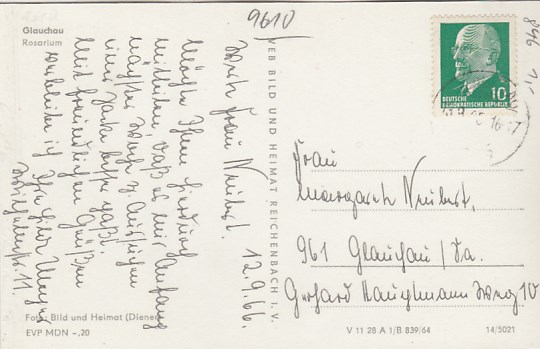 9610
846
Glauchau
Rosarium
Werte Frau Neubert.
12.9.66.
Möchte Ihnen hierdurch
mitteilen, daß es mir Anfang
nächster Woche zu
einer paßt.
Mit freundlichen Grüßen
verbleibe ich Ihre
11
VEB BILD UND HEIMAT REICHENBACH I. V.
DEUTSCHE
DEMOKRATISCHE REPUBLIK
10
Frau
Margarete Neubert,
961 Glauchau/Sa.
Gerhard Hauptmann Weg 10
Foto: Bild und Heimat (Diener)
EVP MDN -,20
V 11 28 A 1/B 839/64
14/5021